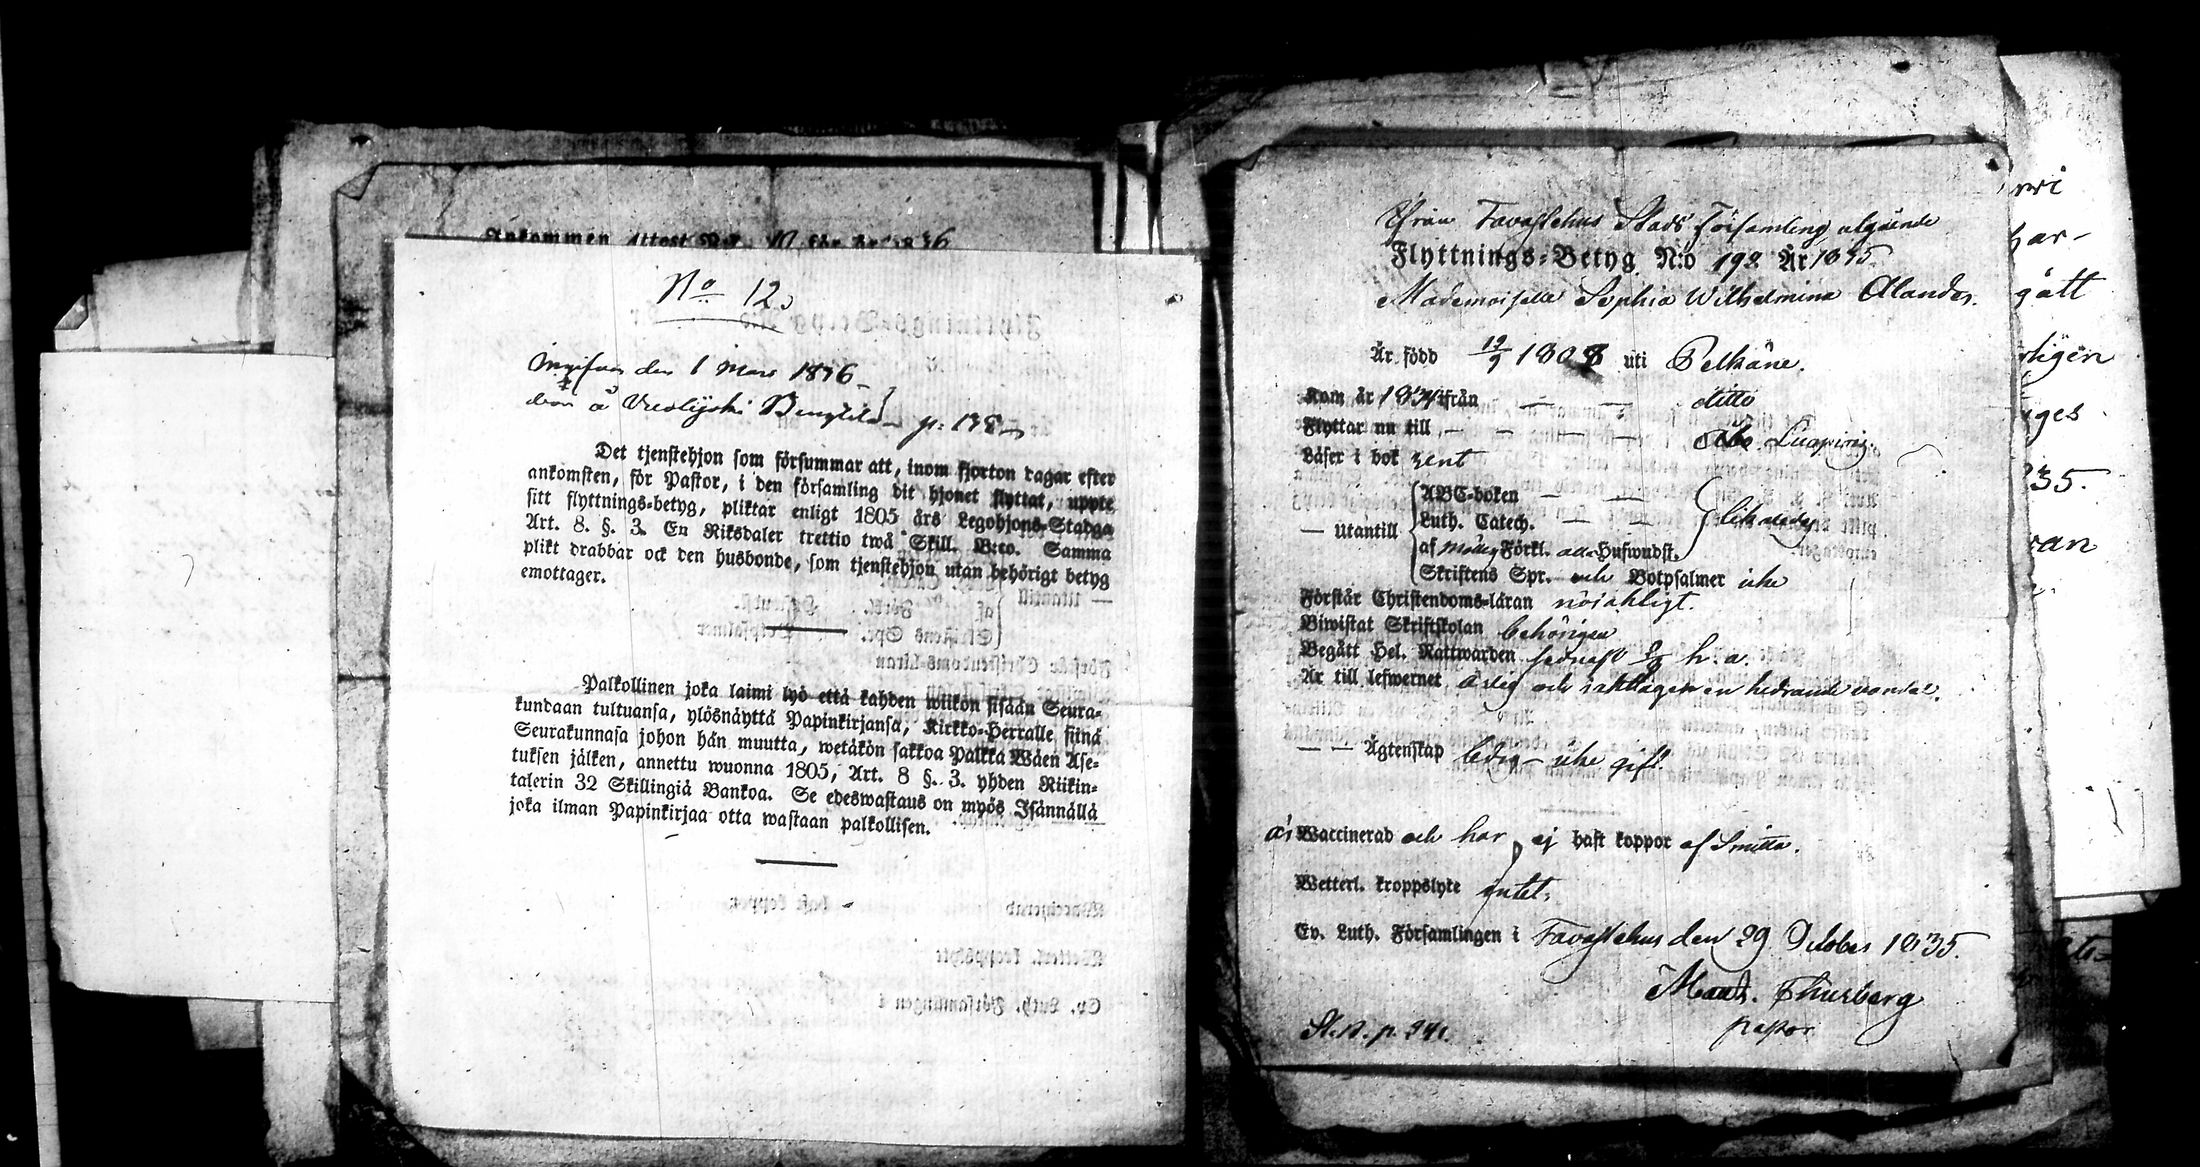 Ankommen attest N:o 10 för år 1836
No 12.
den 1 Mars 1836
å Bengtilä p. 138
Det tjenstehjon som försummar att, inom fjorton dagar efter
ankomsten, för Pastor, i den församling dit hjonet flyttat, uppte
sitt flyttnings-betyg, pliktar enligt 1805 års Legohjons-Stadga
Art. 8. §. 3. En Riksdaler trettio twå Skill. B:co. Samma
plikt drabbar ock den husbonde, som tjenstehjon utan behörigt betyg
emottager.
Palkollinen joka laimi lyö että kahden wiikon sisään Seura-
kundaan tultuansa, ylösnäyttä Papinkirjansa, Kirkko-Herralle siinä
Seurakunnasa johon hän muutta, wetäkön sakkoa Palkka Wäen Ase-
tuksen jälken, annettu wuonna 1805, Art. 8 §. 3. yhden Riikin-
talerin 32 Skillingiä Bankoa. Se edeswastaus on myös Isännällä
joka ilman Papinkirjaa otta wastaan palkollisen.
Ifrån Tavastehus Stads Församling utgående
Flyttnings-Betyg N:o 192 År 1835
Mademoiselle Sophia Wilhelmina Alander.
Är född 19/9 1808 uti Pelkäne.
Kom år 1834 ifrån — — ditto
Flyttar nu till — — — —
Läser i bok rent
— utantill
ABC-boken — —
Luth. Catech. — —
af Förkl. Hufwudst.
likaledes
Skriftens Spr. och Botpsalmer icke
Förstår Christendoms-läran nöjaktigt.
Biwistat Skriftskolan behörigen
Begått Hel. Nattwarden sednast h. a.
Är till lefwernet ärlig och iakttagen en hedrande vandel.
— — Ägtenskap ledig — icke gift
är Waccinerad och har ej haft koppor af Smitta.
Wetterl. kroppslyte intet.
Ev. Luth. Församlingen i Tavastehus den 29 October 1835.
Thurberg
pastor
p. 241.
gått
35.